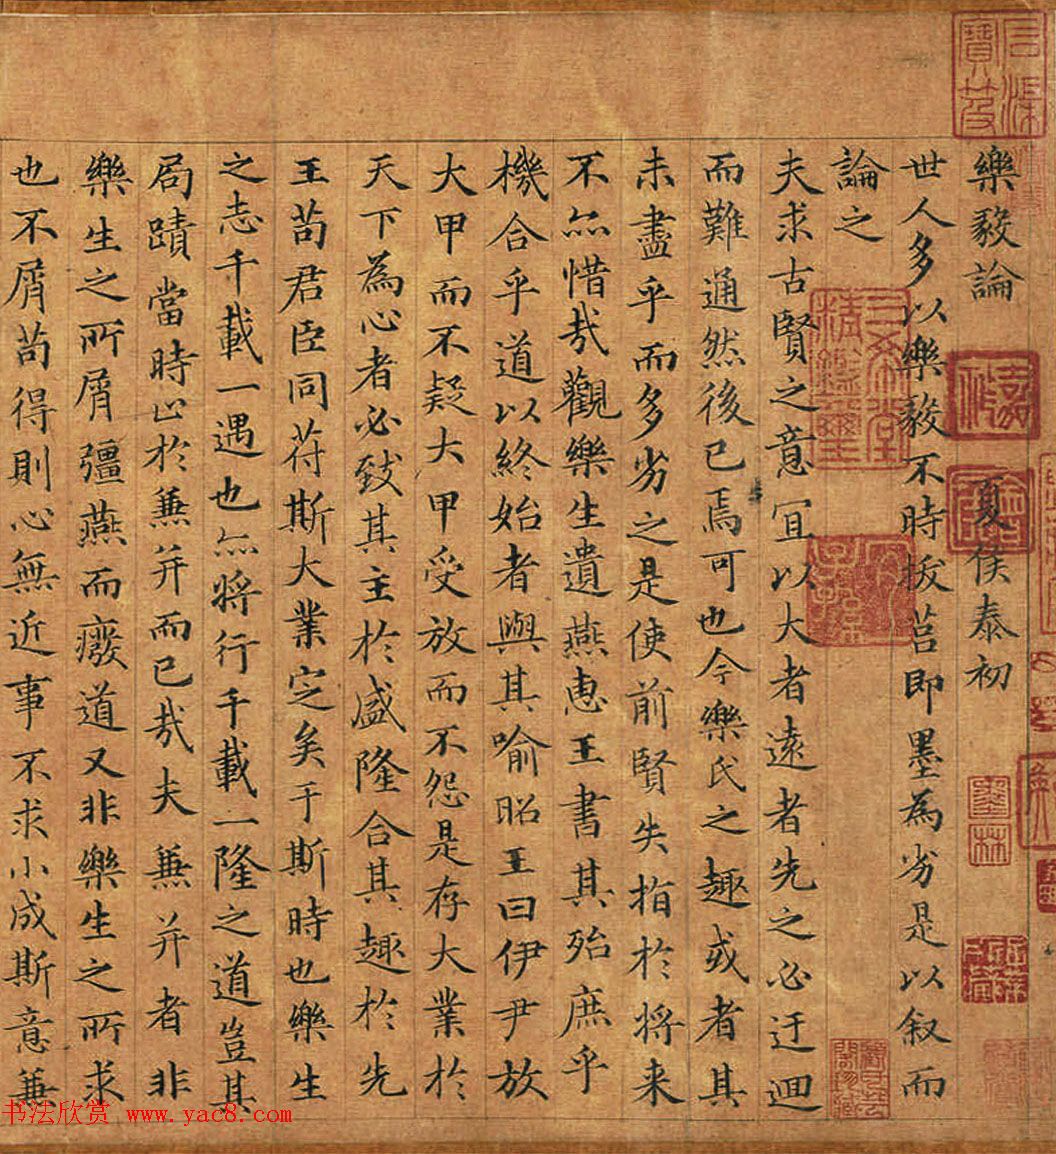 樂毅論 夏侯泰初
世人多以樂毅不時拔莒即墨為劣是以叙而
論之
夫求古賢之意宜以大者遠者先之必迂迴
而難通然後已焉可也今樂氏之趣或者其
未盡乎而多劣之是使前賢失指於將来
不亦惜哉觀樂生遺燕惠王書其殆庶乎
機合乎道以終始者與其喻昭王曰伊尹放
大甲而不疑大甲受放而不怨是存大業於
天下為心者必致其主於盛隆合其趣於先
王苟君臣同苻斯大業定矣于斯時也樂生
之志千載一遇也亦將行千載一隆之道豈其
局蹟當時止於蒹并而已哉夫蒹并者非
樂生之所屑彊燕而癈道又非樂生之所求
也不屑苟得則心無近事不求小成斯意蒹
三希堂精鑑璽
宜子孫
墨林
书法欣赏 www.yac8.com